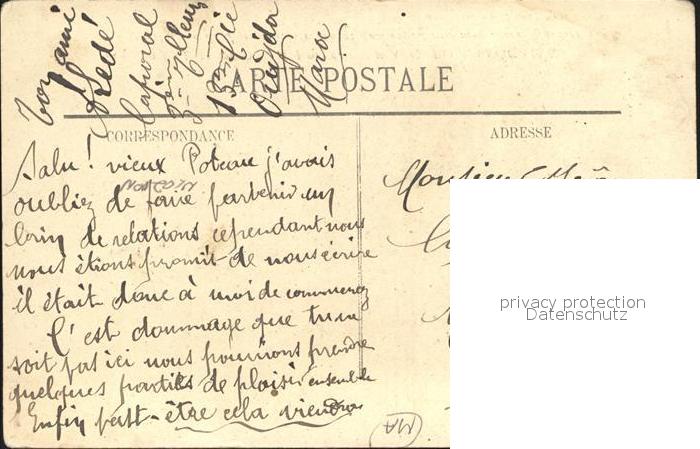 Ton ami
Fredé
Caporal
13me Cie
Oudjda
Maroc
CARTE POSTALE
CORRESPONDANCE
ADRESSE
Salu! vieux Poteau j'avais
oubliez de faire parvenir un
brin de relations cependant nous
nous étions promit de nous écrire
il était donc à moi de commencez
C'est dommage que tu ne
soit pas ici nous pourrions prendre
quelques parties de plaisir ensemble
Enfin peut-être cela viendra
Monsieur
privacy protection
Datenschutz
MA